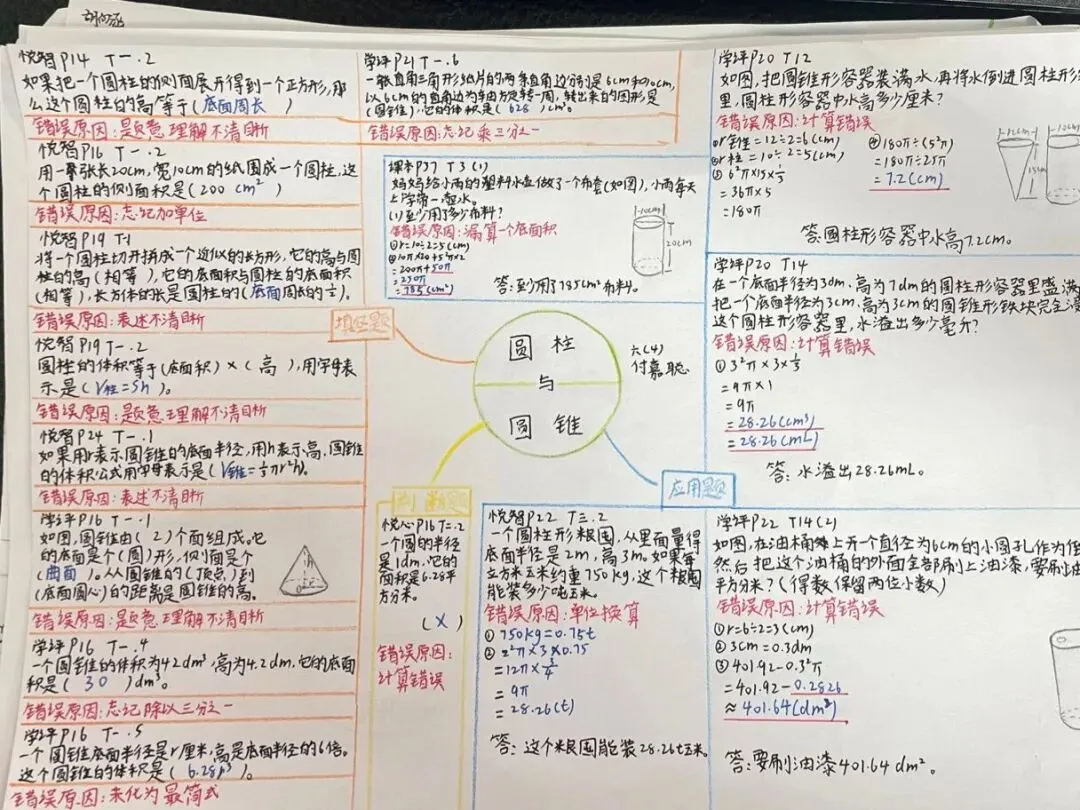 悦智P14 T一.2
如果把一个圆柱的侧面展开得到一个正方形,那
么这个圆柱的高等于(底面周长 )
错误原因:题意理解不清晰
悦智P16 T一.2
用一张长20cm,宽10cm的纸围成一个圆柱,这
个圆柱的侧面积是(200 cm²)
错误原因:忘记加单位
悦智P19 T1
将一个圆柱切开拼成一个近似的长方形,它的高与圆
柱的高(相等 ),它的底面积与圆柱的底面积
(相等),长方体的长是圆柱的(底面周长的½)。
错误原因:表述不清晰
悦智P19 T一.2
圆柱的体积等于(底面积)×(高),用字母表
示是(V柱=Sh)。
错误原因:题意理解不清晰
悦智P24 T一.1
如果用r表示圆锥的底面半径,用h表示高,圆锥
的体积公式用字母表示是(V锥=⅓πr²h)。
错误原因:表述不清晰
学评P16 T一.1
如图,圆锥由(2)个面组成。它
的底面是个(圆)形,侧面是个
(曲面)。从圆锥的(顶点)到
(底面圆心)的距离是圆锥的高。
错误原因:题意理解不清晰
学评P16 T一.4
一个圆锥的体积为42dm³,高为4.2dm,它的底面
积是( 30 )dm³。
错误原因:忘记除以三分之一
学评P16 T一.5
一个圆锥底面半径是r厘米,高是底面半径的6倍。
这个圆锥的体积是( 6.28r³ )。
错误原因:未化为最简式
学评P21 T一.6
一般直角三角形纸片的两条直角边分别是6cm和10cm,
以6cm的直角边为轴旋转一周,转出来的图形是
(圆锥),它的体积是(628 )cm³。
错误原因:忘记乘三分之一
课本P37 T3(1)
妈妈给小雨的塑料水壶做了一个布套(如图),小雨每天
上学带一壶水。
(1)至少用了多少布料?
错误原因:漏算一个底面积
①r=10÷2=5(cm)
②10π×20+5²π×2
=200π+50π
=250π
=785(cm²)
10cm
20cm
答:至少用了785cm²布料。
填空题
圆柱
与
圆锥
六(4)
付嘉聪
判断题
应用题
悦心P16 T二.2
一个圆的半径
是1dm,它的
面积是6.28平
方分米。
(×)
错误原因:
计算错误
悦智P22 T三.2
一个圆柱形粮囤,从里面量得
底面半径是2m,高3m。如果每
立方米玉米约重750kg,这个粮囤
能装多少吨玉米。
错误原因:单位换算
①750kg=0.75t
②2²π×3×0.75
=12π×¾
=9π
=28.26(t)
答:这个粮囤能装28.26t玉米。
学评P20 T12
如图,把圆锥形容器装满水,再将水倒进圆柱形
里,圆柱形容器中水高多少厘米?
错误原因:计算错误
①r锥=12÷2=6(cm)
②r柱=10÷2=5(cm)
③6²π×15×⅓
=36π×5
=180π
④180π÷(5²π)
=180π÷25π
=7.2(cm)
12cm
15cm
答:圆柱形容器中水高7.2cm。
学评P20 T14
在一个底面半径为3dm,高为7dm的圆柱形容器里盛满
把一个底面半径为3cm,高为3cm的圆锥形铁块完全浸
这个圆柱形容器里,水溢出多少毫升?
错误原因:计算错误
①3²π×3×⅓
=9π×1
=9π
=28.26(cm³)
=28.26(mL)
答:水溢出28.26mL。
学评P22 T14(2)
如图,在油桶上开一个直径为6cm的小圆孔作为
然后把这个油桶的外面全部刷上油漆,要刷油
平方分米?(得数保留两位小数)
错误原因:计算错误
①r=6÷2=3(cm)
②3cm=0.3dm
③401.92-0.3²π
=401.92-0.2826
≈401.64(dm²)
答:要刷油漆401.64dm²。